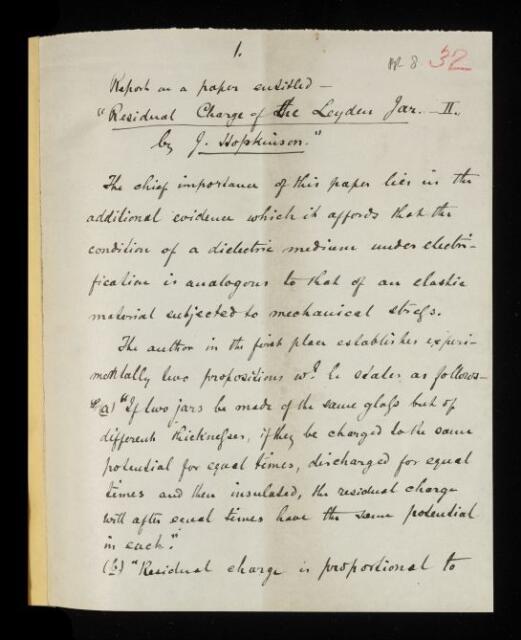 1.
RR 8 32
Report on a paper entitled —
"Residual Charge of the Leyden Jar. — II.
by J. Hopkinson."
The chief importance of this paper lies in the
additional evidence which it affords that the
condition of a dielectric medium under electri-
fication is analogous to that of an elastic
material subjected to mechanical stress.
The author in the first place establishes experi-
mentally two propositions wh. he states as follows—
(a) "If two jars be made of the same glass but of
different thicknesses, if they be charged to the same
potential for equal times, discharged for equal
times and then insulated, the residual charge
will after equal times have the same potential
in each."
(b) "Residual charge is proportional to